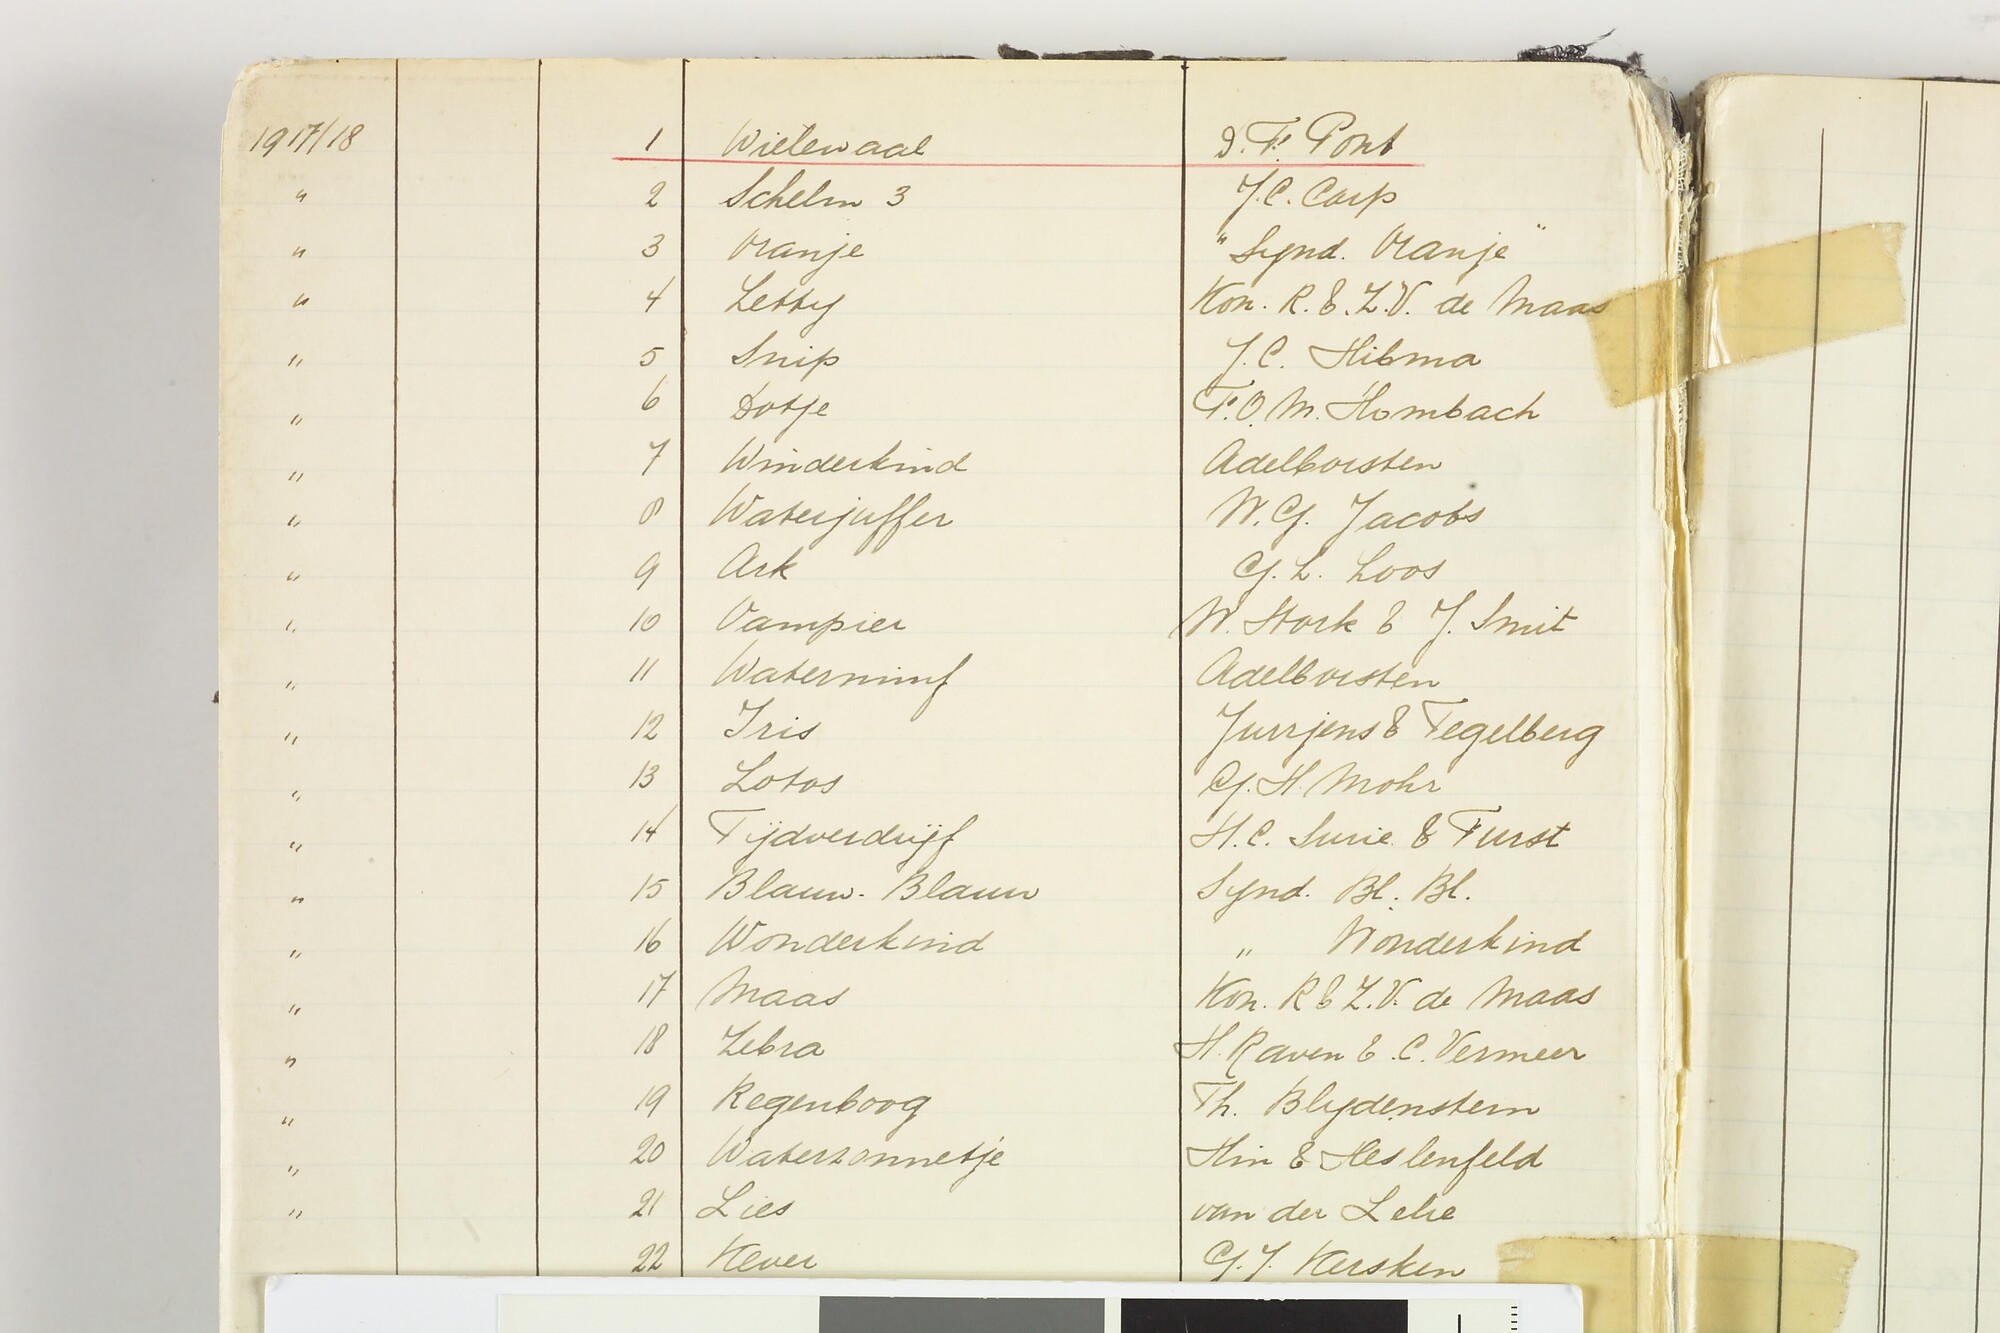 1917/18 1 Wielewaal D. F. Pont
" 2 Schelm 3 J. C. Carp
" 3 Oranje "Synd. Oranje"
" 4 Letty Kon. R. & Z. V. de Maas
" 5 Snip J. C. Hibma
" 6 Dotje F. O. M. Hombach
" 7 Winderkind Adelborsten
" 8 Waterjuffer W. G. Jacobs
" 9 Ark G. L. Loos
" 10 Vampier W. Stork & J. Smit
" 11 Waternimf Adelborsten
" 12 Iris Jurrjens & Tegelberg
" 13 Lotos G. H. Mohr
" 14 Tijdverdrijf H. C. Surie & Furst
" 15 Blauw-Blauw Synd. Bl. Bl.
" 16 Wonderkind " Wonderkind
" 17 Maas Kon. R & Z. V. de Maas
" 18 Zebra H. Raven & C. Vermeer
" 19 Regenboog Th. Blydenstein
" 20 Waterzonnetje Hin & Heslenfeld
" 21 Lies van der Lelie
22 Kever G. J. Kersken